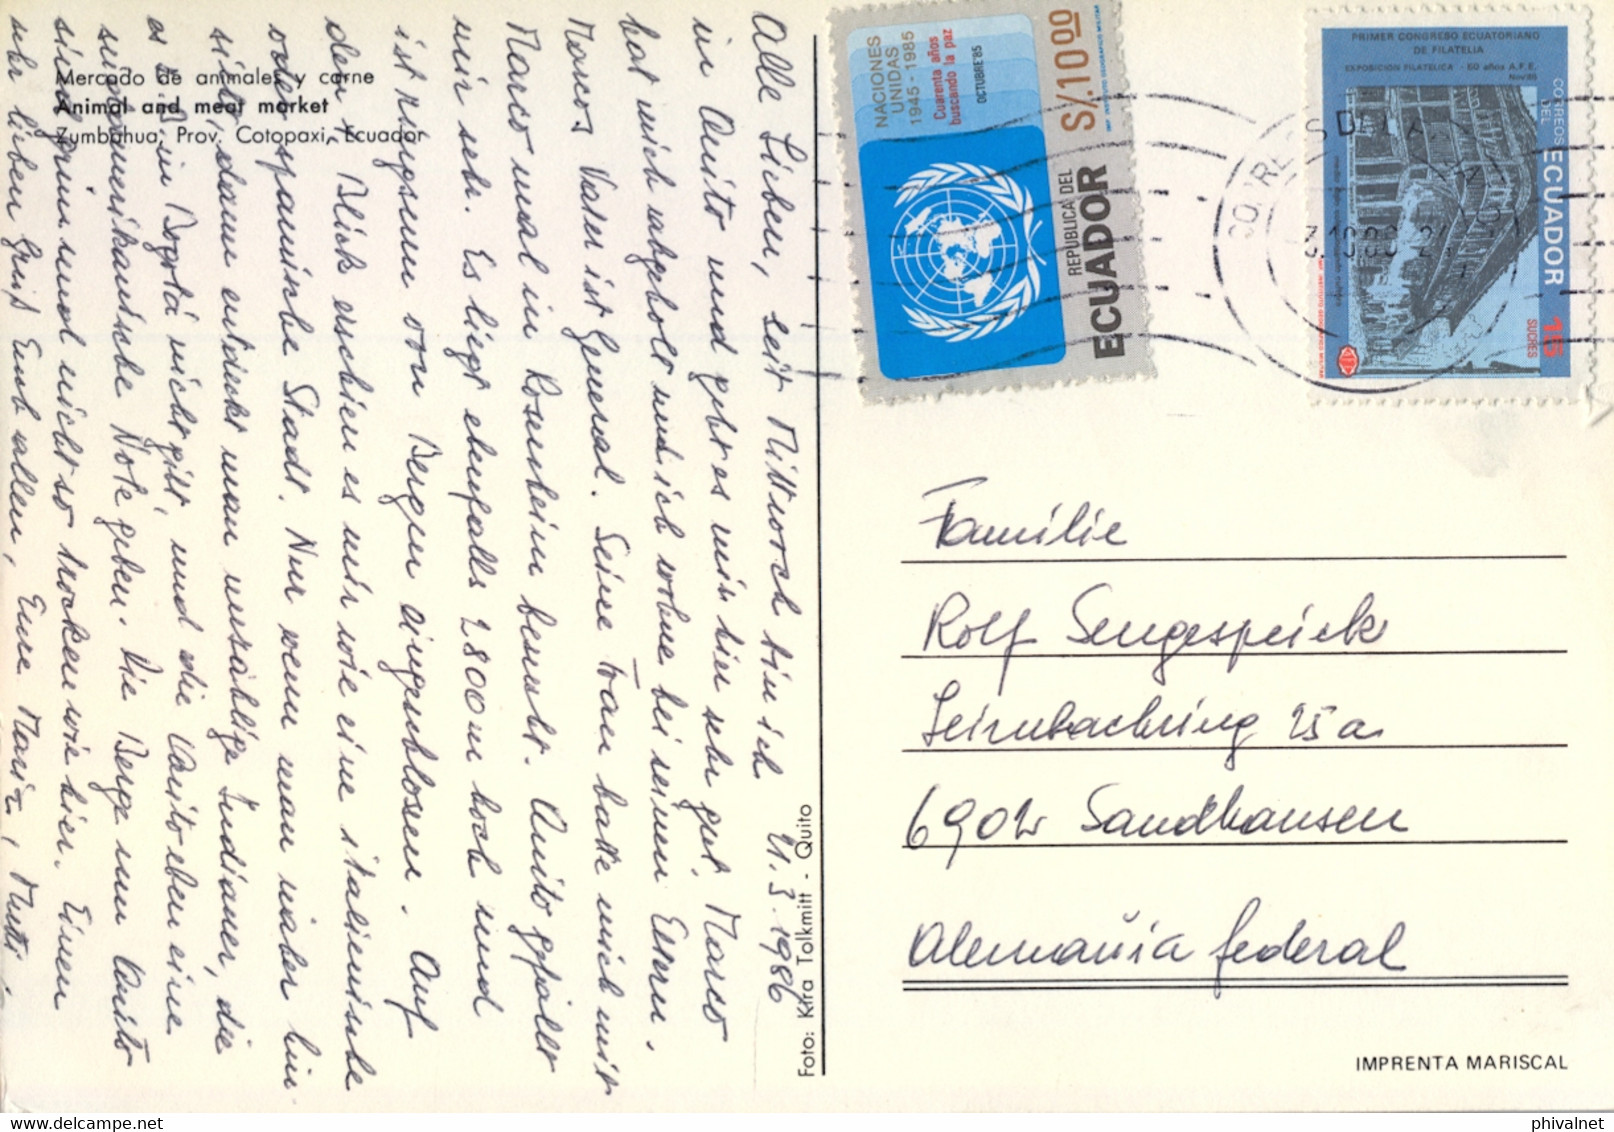 Mercado de animales y carne
Animal and meat market
Zumbahua, Prov. Cotopaxi, Ecuador
21.3.1986
Alle Lieben, seit Mittwoch bin ich
in Quito und geht es mir hier sehr gut. Marco
hat mich abgeholt und ich wohne bei seinen Eltern.
Marcos Vater ist General. Seine Frau hatte mich mit
Marco mal in Rosenheim besucht. Quito gefällt
mir sehr. Es liegt ebenfalls 2800m hoch und
ist ringsum von Bergen eingeschlossen. Auf
den 1. Blick erschien es mir wie eine italienische
oder spanische Stadt. Nur wenn man näher hin-
sieht, dann entdeckt man unzählige Indianer, die
es in Bogotá nicht gibt, und die Quito eben eine
südamerikanische Note geben. Die Berge um Quito
sind grün und nicht so trocken wie hier. Einen
sehr lieben Gruß Euch allen, Eure Mutti.
Foto: Kira Tolkmitt - Quito
NACIONES
UNIDAS
1945 - 1985
Cuarenta años
buscando la paz
OCTUBRE'85
S/.10.00
REPUBLICA DEL
ECUADOR
PRIMER CONGRESO ECUATORIANO
DE FILATELIA
EXPOSICION FILATELICA - 50 años A.F.E.
CORREOS
DEL
ECUADOR
15
SUCRES
Familie
Rolf Sengespeick
Leimbachring 25a
6902 Sandhausen
Alemania federal
IMPRENTA MARISCAL
delcampe.net
phivalnet